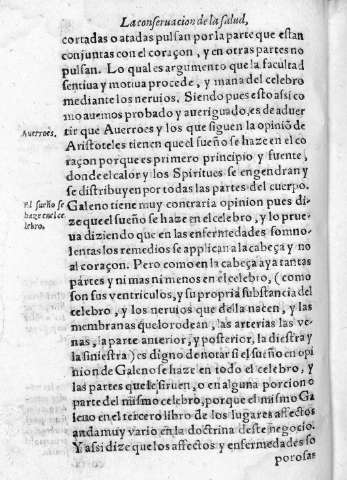 La conseruacion de la salud,
cortadas o atadas pulsan por la parte que estan
conjuntas con el coraçon, y en otras partes no
pulsan. Lo qual es argumento que la facultad
sentiua y motiua procede, y mana del celebro
mediante los neruios. Siendo pues esto assi co
mo auemos probado y aueriguado, es de aduer
Auerroes.
tir que Auerroes y los que siguen la opinió de
Aristoteles tienen que el sueño se haze en el co
raçon porque es primero principio y fuente,
donde el calor y los Spiritues se engendran y
se distribuyen por todas las partes del cuerpo.
El sueño se
haze en el ce
lebro.
Galeno tiene muy contraria opinion pues di-
ze que el sueño se haze en el celebro, y lo prue-
ua diziendo que en las enfermedades somno-
lentas los remedios se applican a la cabeça y no
al coraçon. Pero como en la cabeça aya tantas
partes y ni mas ni menos en el celebro, (como
son sus ventriculos, y su propria substancia del
celebro, y los neruios que della nacen, y las
membranas que lo rodean, las arterias las ve-
nas, la parte anterior, y posterior, la diestra y
la siniestra) es digno de notar si el sueño en opi
nion de Galeno se haze en todo el celebro, y
las partes que le siruen, o en alguna porcion o
parte del mismo celebro, porque el mismo Ga
leno en el tercero libro de los lugares affectos
anda muy vario en la doctrina deste negocio.
Y assi dize que los affectos y enfermedades so
porosas